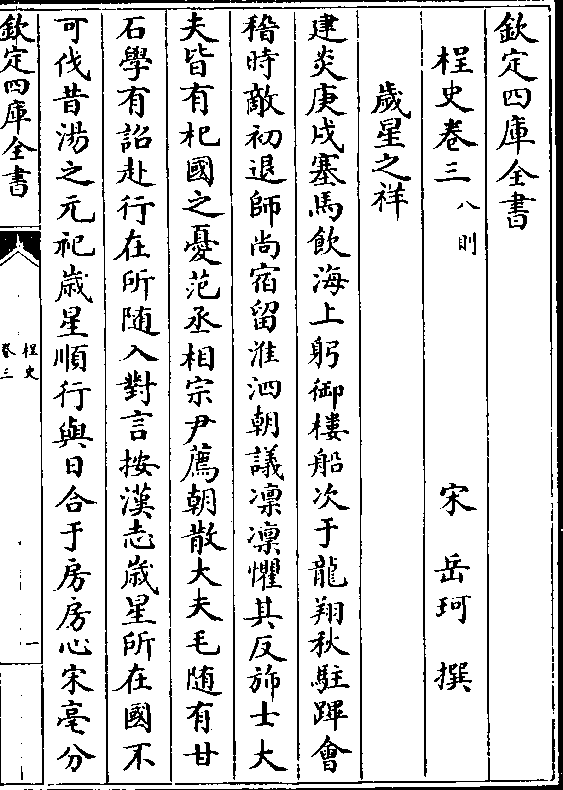 欽定四庫全書
桯史卷三 八則
宋 岳珂 撰
歲星之祥
建炎庚戌塞馬飲海上躬御樓船次于龍翔秋駐蹕會
稽時敵初退師尚宿留淮泗朝議凛凛懼其反斾士大
夫皆有杞國之憂范丞相宗尹薦朝散大夫毛随有甘
石學有詔赴行在所随入對言按漢志歲星所在國不
可伐昔湯之元祀歲星順行與日合于房房心宋亳分
欽定四庫全書
桯史
卷三
一